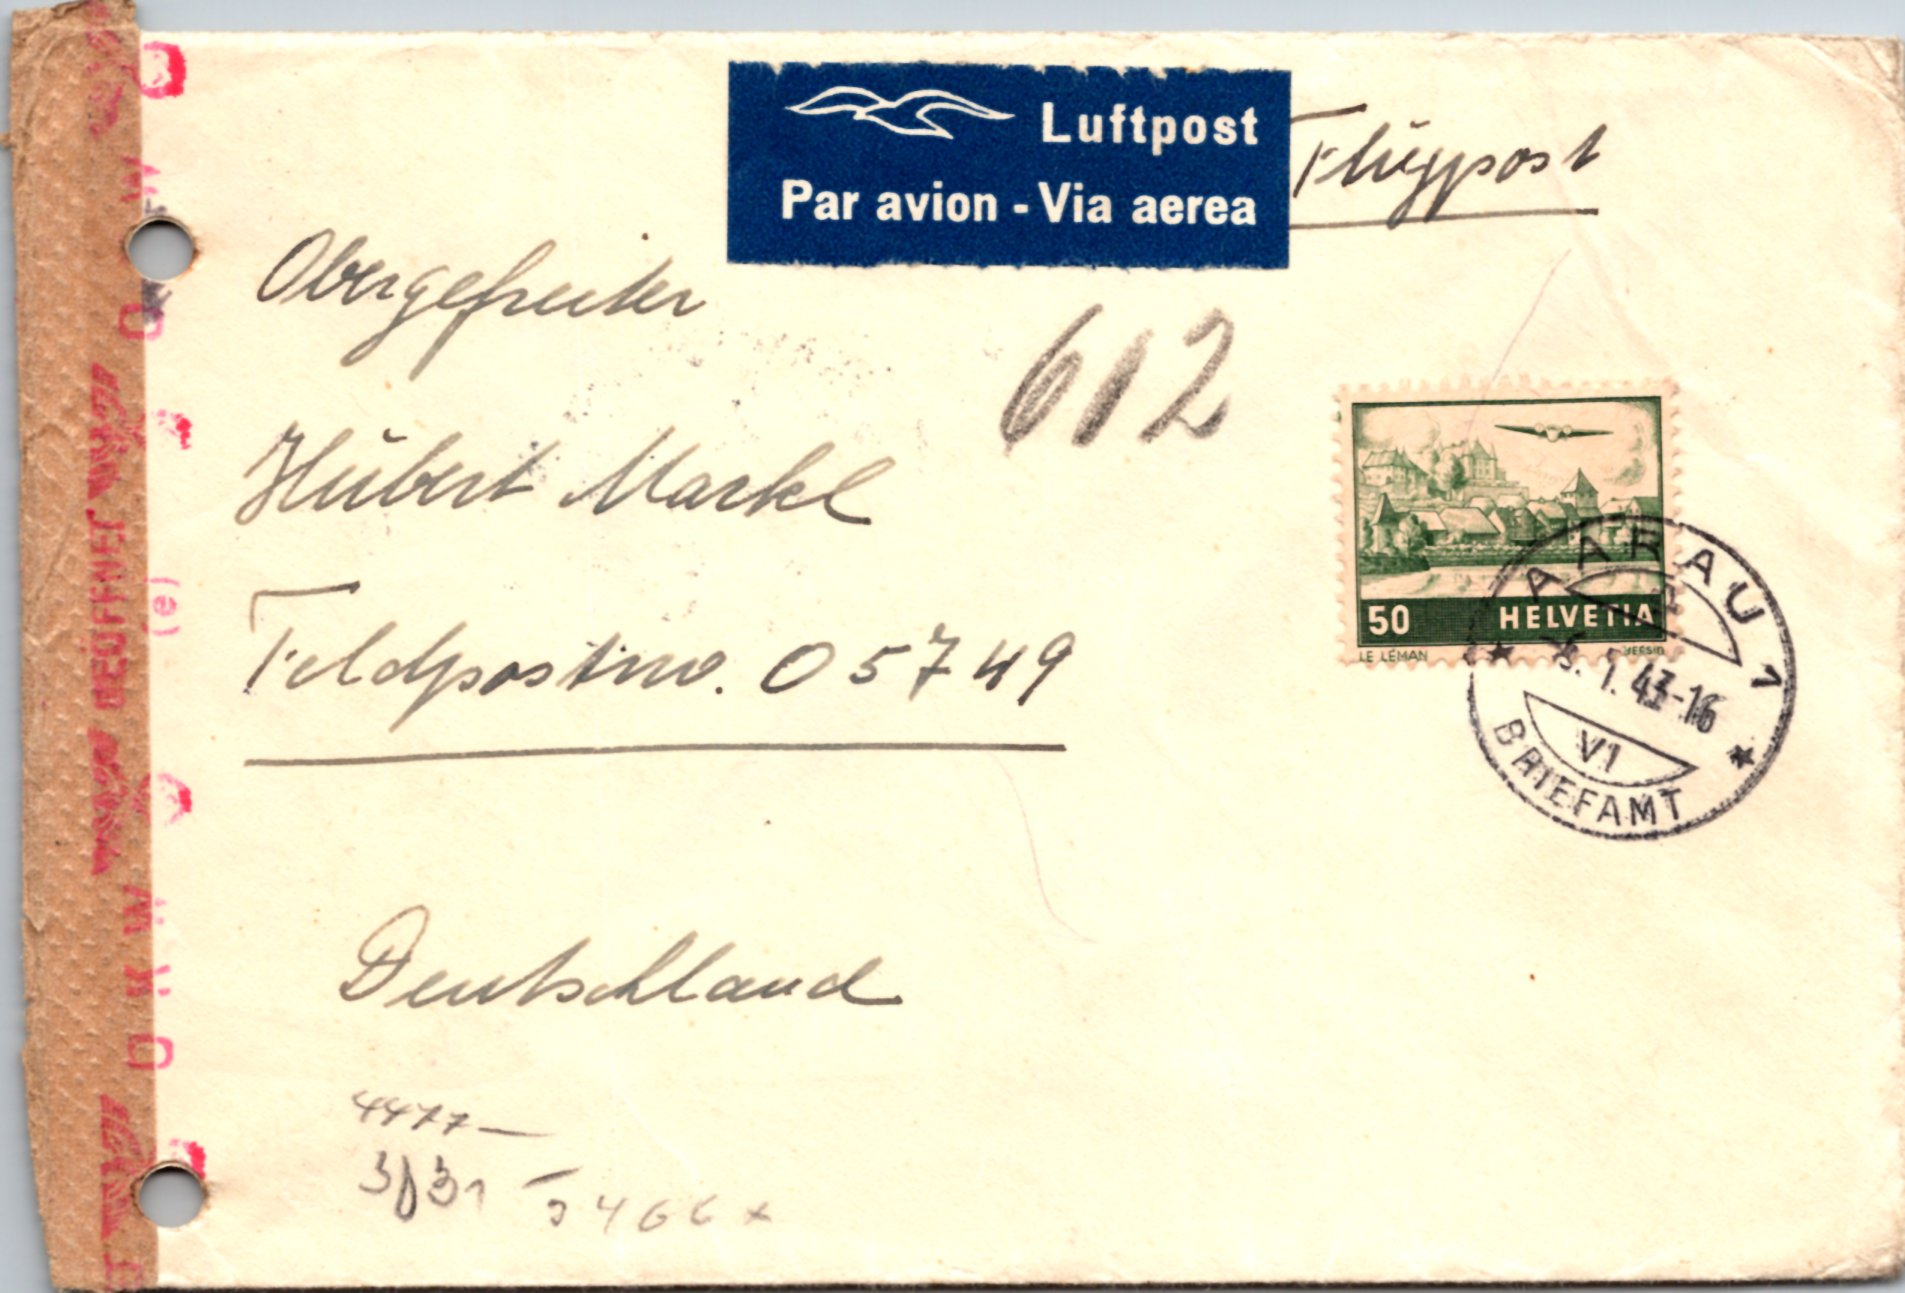 Luftpost
Par avion - Via aerea
Flugpost
Obergefreiter
612
Hubert Markl
Feldpostnr. 05749
Deutschland
50 HELVETIA
LE LÉMAN
AARAU 1
1. 43-16
V1
BRIEFAMT
GEÖFFNET
(e)
4477